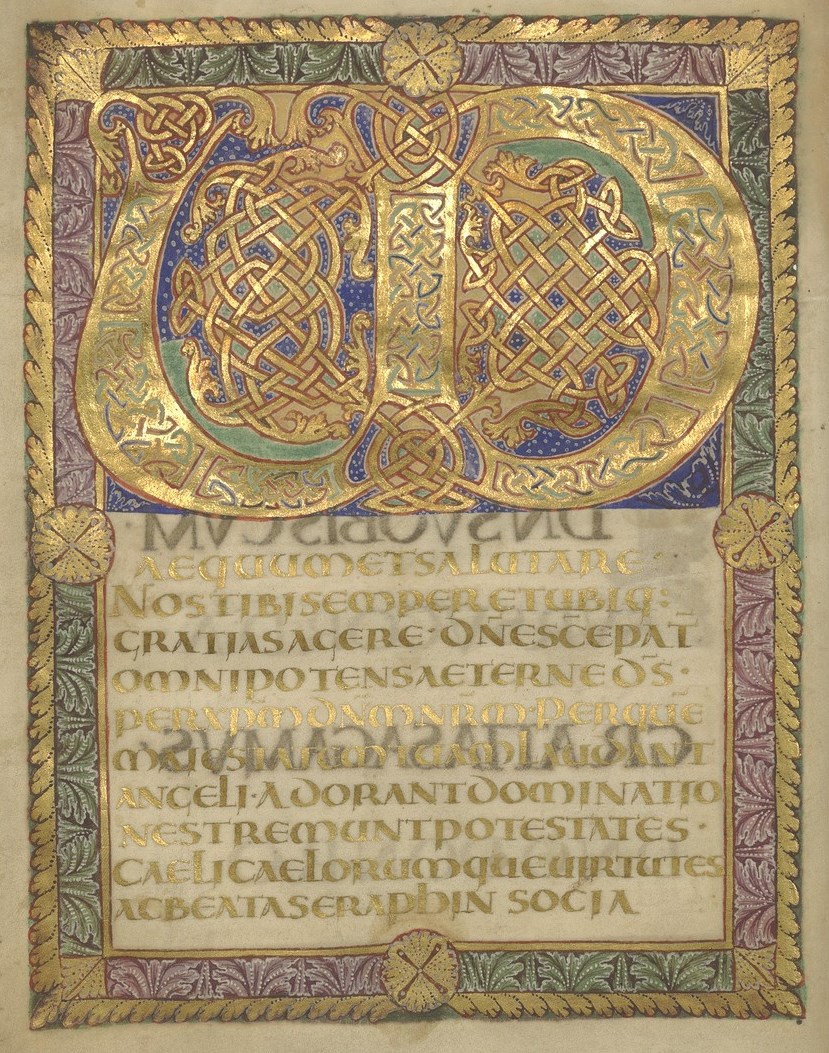 VD
AEQUUMETSALUTARE
NOSTIBISEMPERETUBIQ:
GRATIASAGERE·DN̄ESC̄EPAT̄
OMNIPOTENSAETERNED̄S·
PERXP̄M̄DN̄M̄NR̄M̄PERQUE
MAIESTATEMTUAMLAUDANT
ANGELI·ADORANTDOMINATIO
NESTREMUNTPOTESTATES·
CAELICAELORUMQUEUIRTUTES
ACBEATASERAPHIN SOCIA